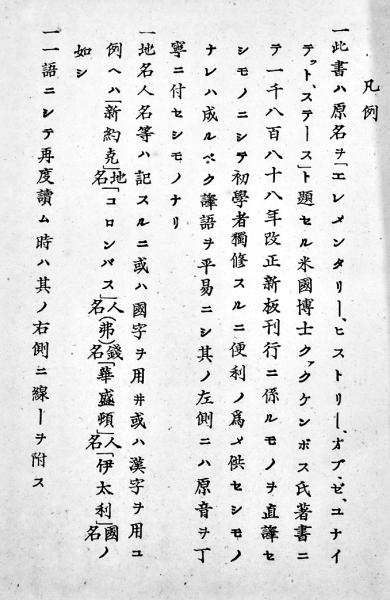 凡例
一此書ハ原名ヲ「エレメンタリー、ヒストリー、オブ、ゼ、ユナイ
テット、ステース」ト題セル米國博士クァッケンボス氏著書ニ
テ一千八百八十八年改正新板刊行ニ係ルモノヲ直譯セ
シモノニシテ初學者獨修スルニ便利ノ爲メ供セシモノ
ナレハ成ルベク譯語ヲ平易ニシ其ノ左側ニハ原音ヲ丁
寧ニ付セシモノナリ
一地名人名等ハ記スルニ或ハ國字ヲ用井或ハ漢字ヲ用ユ
例ヘハ「新約克」地名「コロンバス」人名(弗)錢名「華盛頓」人名「伊太利」國名ノ
如シ
一一語ニシテ再度讀ム時ハ其ノ右側ニ線―ヲ附ス